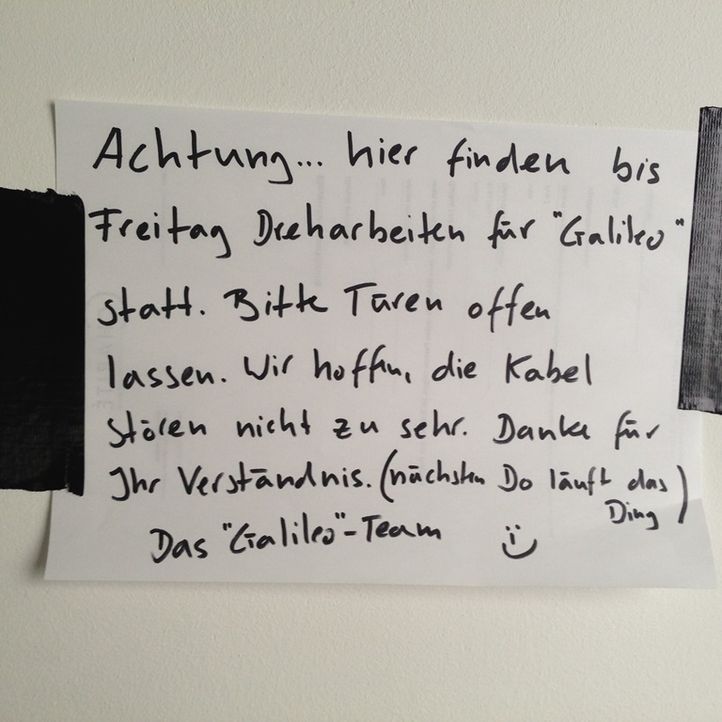 Achtung... hier finden bis
Freitag Dreharbeiten für "Galileo"
statt. Bitte Türen offen
lassen. Wir hoffen, die Kabel
stören nicht zu sehr. Danke für
Ihr Verständnis. (nächsten Do läuft das
Ding)
Das "Galileo"-Team